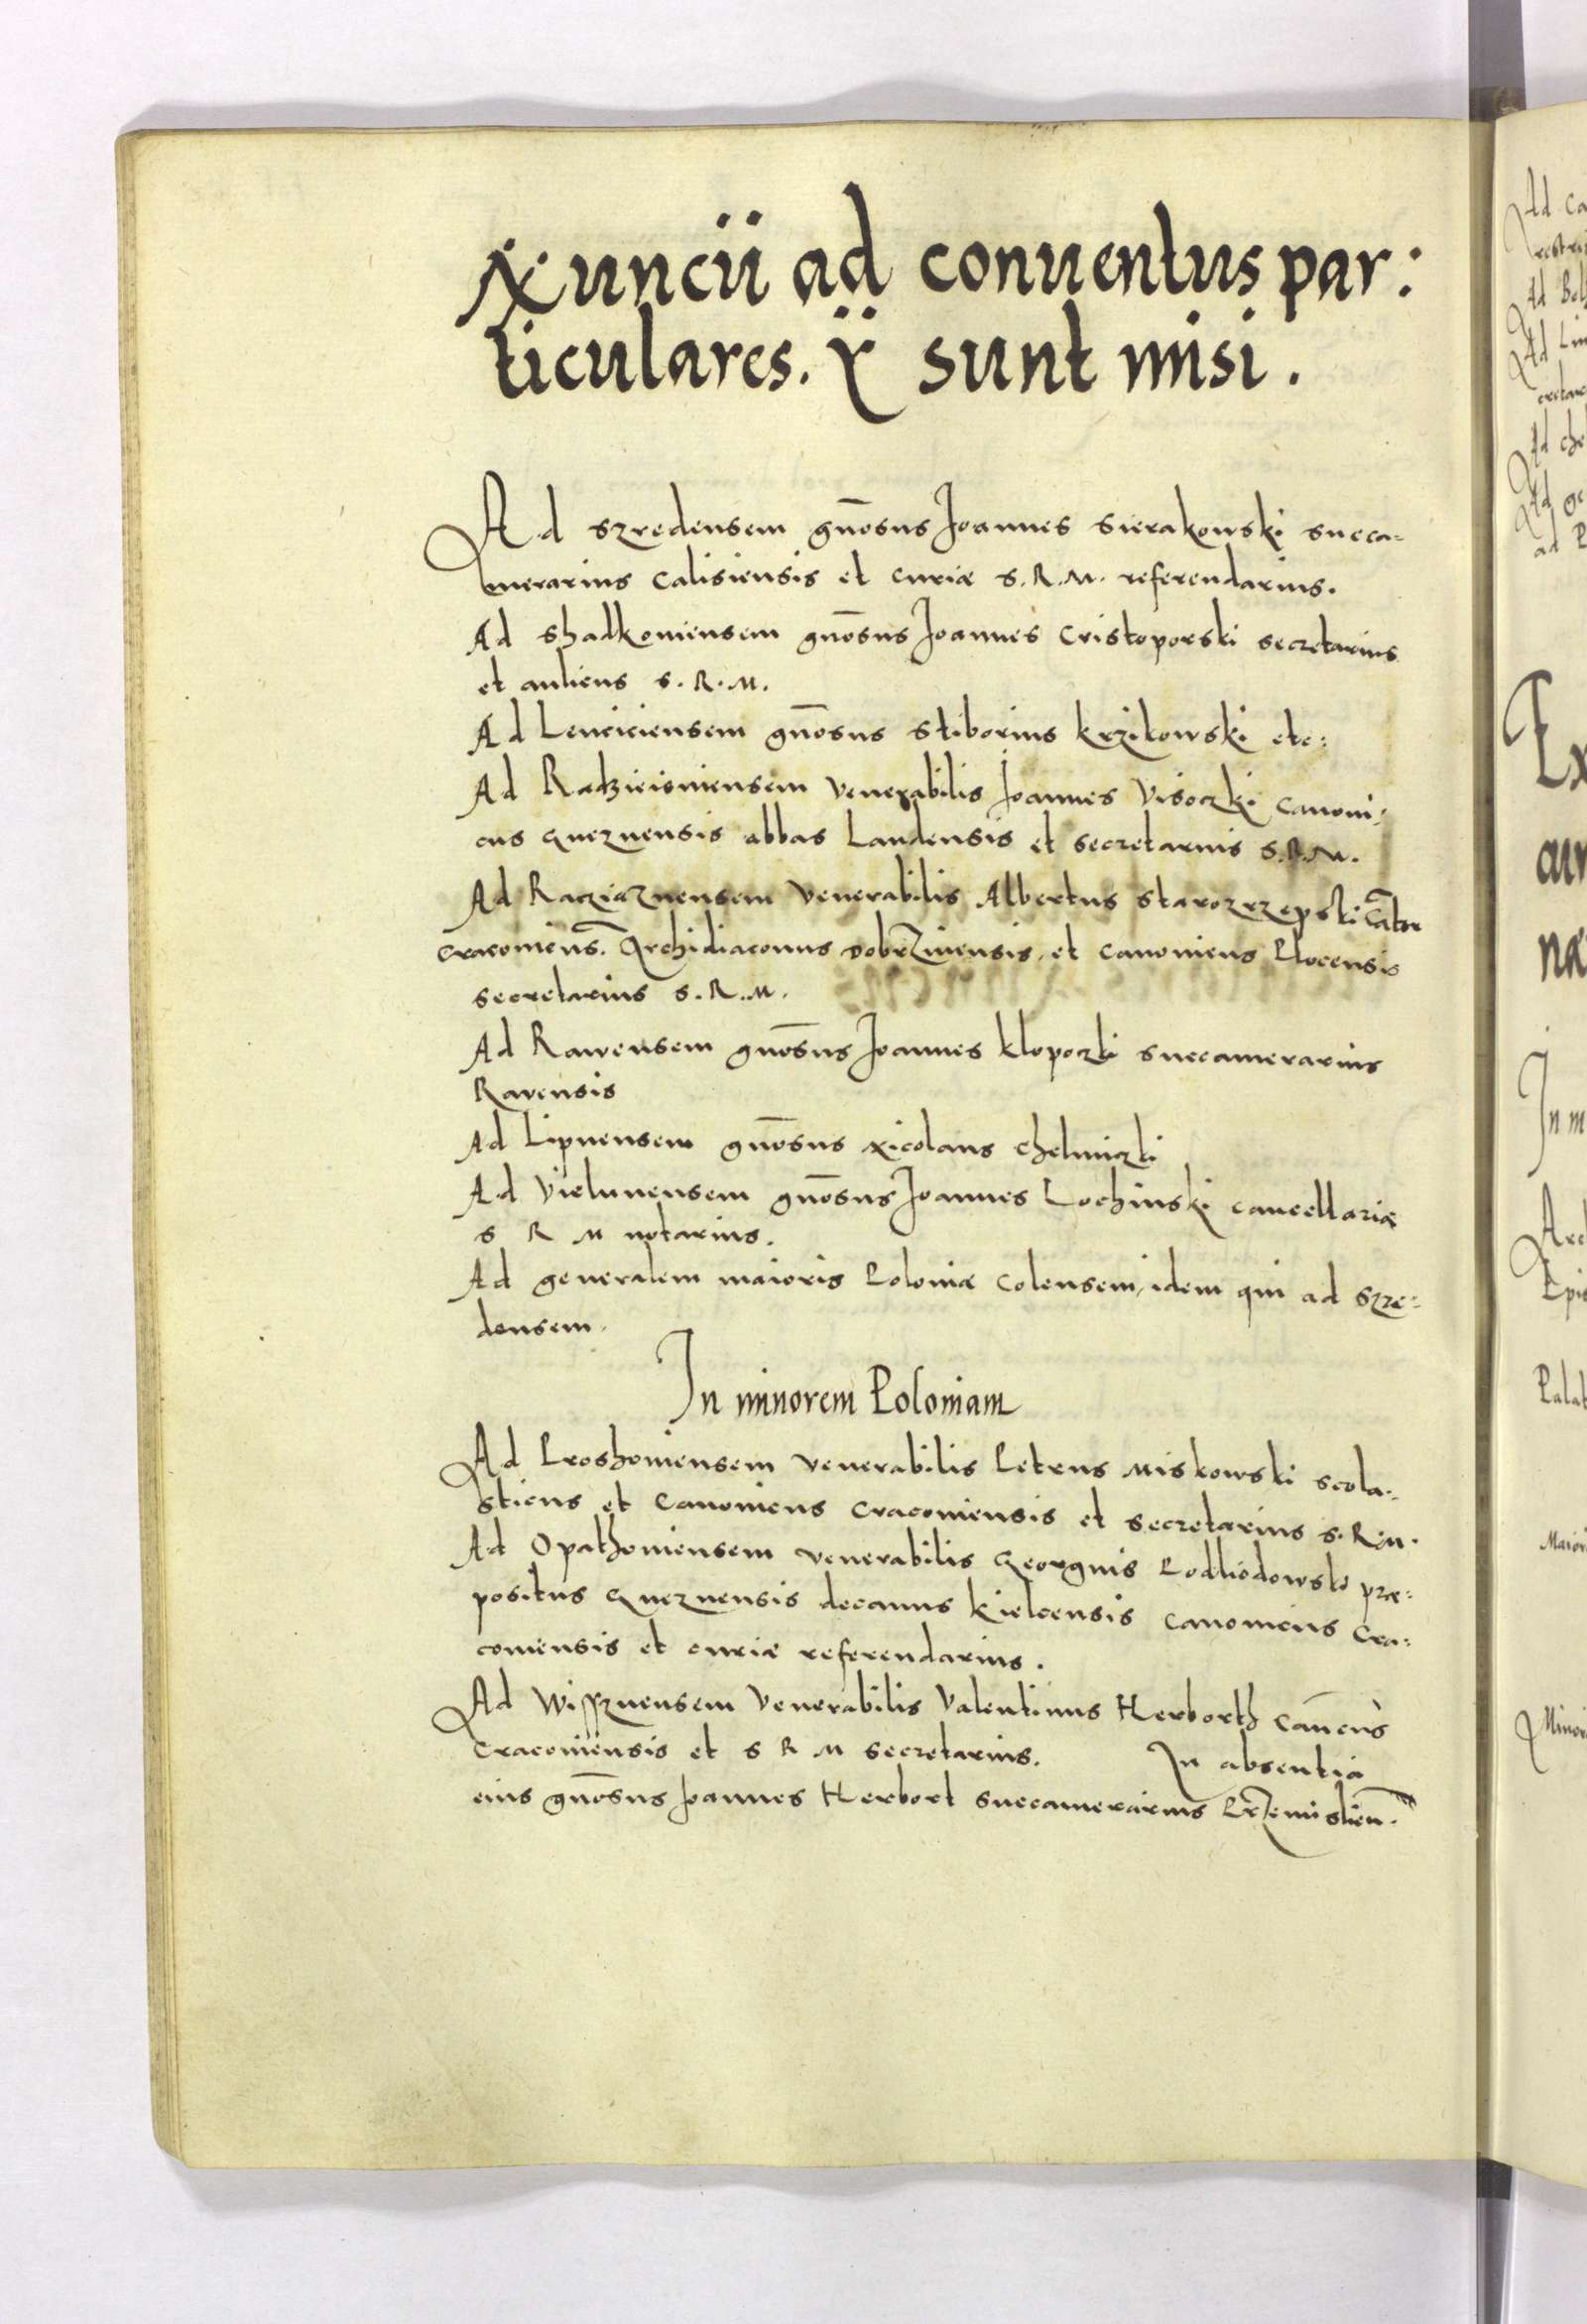 Nuncii ad conuentus par:
ticulares. ÿ sunt misi.
Ad szredensem gn̄osus Joannes Sierakowski succa=
merarius Calisiensis et curiæ S. R. M. referendarius.
Ad shadkoviensem gn̄osus Joannes Cristoporski secretarius
et aulicus S. R. M.
Ad Lenciciensem gn̄osus Stiborius Krzikowski etc:
Ad Radzieioviensem venerabilis Joannes Visoczki canoni=
cus Gneznensis abbas Landensis et secretarius S. R. M.
Ad Racziaznensem venerabilis Albertus Starozrzepski Cātor
Cracoviens̄. Archidiaconus Dobrzinensis, et canonicus Plocensis
secretarius S. R. M.
Ad Rawensem gn̄osus Joannes Klopoczki succamerarius
Ravensis
Ad Lipnensem gn̄osus Nicolaus Chelmiczki
Ad Vielunensem gn̄osus Joannes Lochinski cancellariæ
S R M notarius.
Ad generalem maioris Poloniæ Colensem, idem qui ad szre=
densem.
In minorem Poloniam
Ad Proshoviensem venerabilis Petrus Miskowski scola=
sticus et Canonicus Cracoviensis et secretarius S. R. M.
Ad Opathoviensem venerabilis Georgius Podlodowski præ=
positus Gneznensis decanus Kielcensis canonicus Cra=
coviensis et curiæ referendarius.
Ad Wissznensem Venerabilis Valentinus Herborth cano͞cus
Cracoviensis et S R M secretarius. In absentia
eius gn̄osus Joannes Herbort succamerarius Przemislien̄.
Ad
Ad
Ad
Ad
Ad
ad
Ex
In